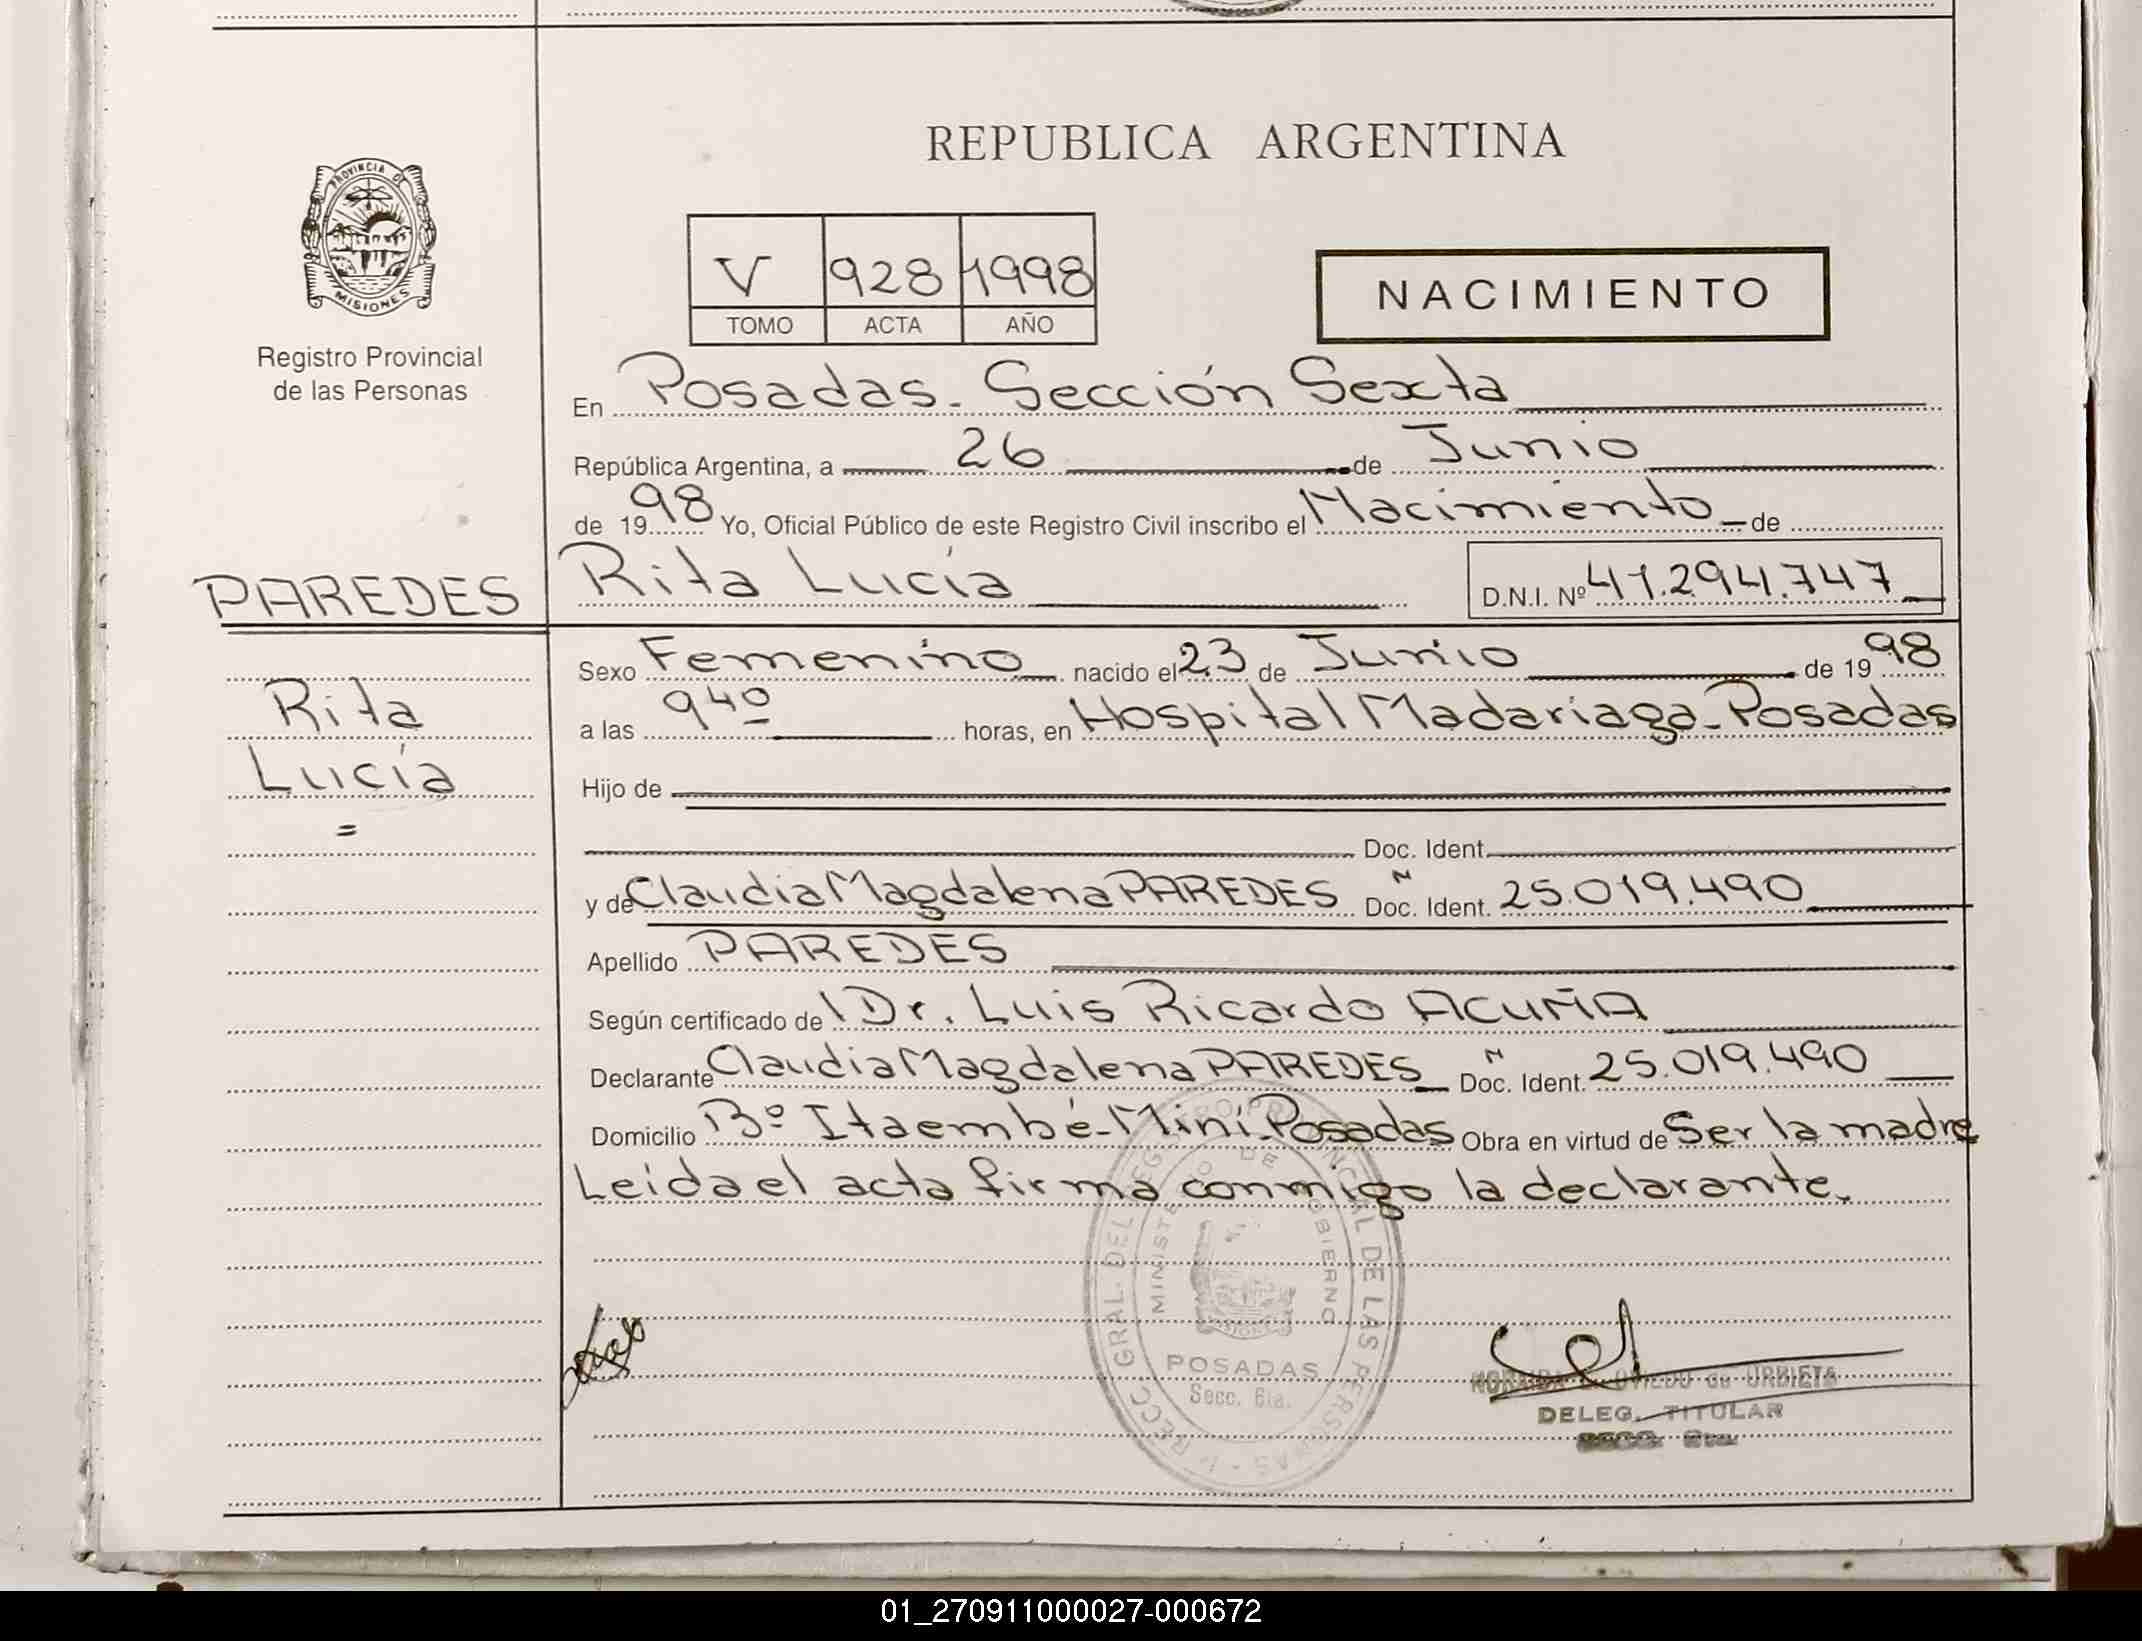 REPUBLICA ARGENTINA
PROVINCIA DE
MISIONES
Registro Provincial
de las Personas
V 928 1998
TOMO ACTA AÑO
NACIMIENTO
En Posadas - Sección Sexta
República Argentina, a 26 de Junio
de 1998 Yo, Oficial Público de este Registro Civil inscribo el Nacimiento - de
PAREDES
Rita Lucía D.N.I. Nº 41.294.747
Rita
Lucía
=
Sexo Femenino nacido el 23 de Junio de 1998
a las 9 40 horas, en Hospital Madariaga - Posadas
Hijo de
Doc. Ident.
y de Claudia Magdalena PAREDES Doc. Ident. N 25.019.490
Apellido PAREDES
Según certificado de Dr. Luis Ricardo ACUÑA
Declarante Claudia Magdalena PAREDES Doc. Ident. N 25.019.490
Domicilio Bº Itaembé - Miní - Posadas Obra en virtud de Ser la madre
Leída el acta firma conmigo la declarante.
MINISTERIO DE GOBIERNO
MISIONES
POSADAS
Secc. 6ta.
OVIEDO de URBIETA
DELEG. TITULAR
01_270911000027-000672